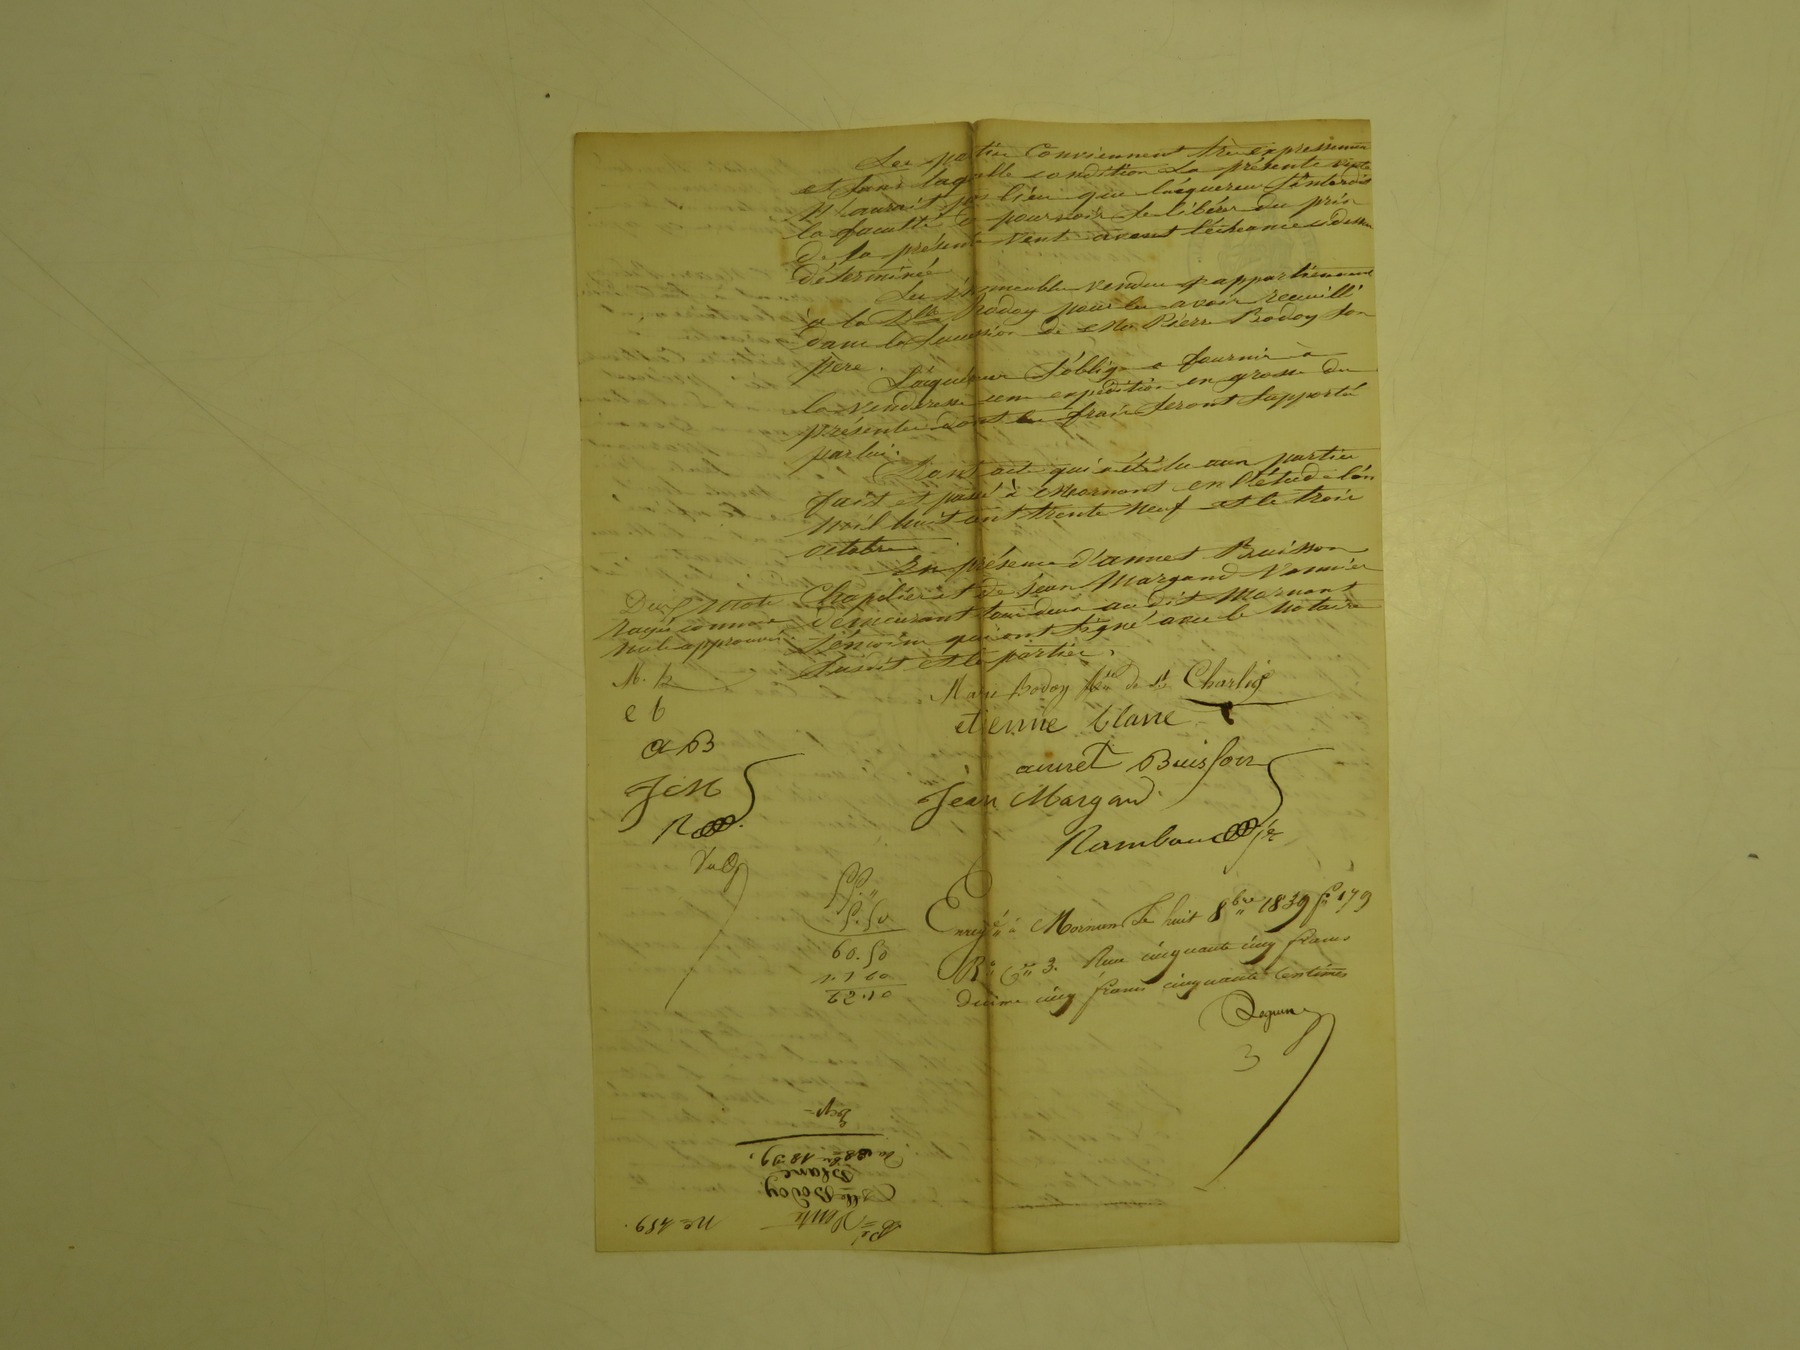 Les parties Conviennent très expressement
et sans laquelle condition La présente vente
N'aurait pas lieu que l'aquereur S'interdit
la faculté de pourvoir Se libérer du prix
de la présente Vent avant l'échéance ci dessus
déterminée
Les immeubles vendus appartiennent
à la Dlle Bodoy pour les avoir recueilli
dans la Succession de Mr Pierre Bodoy Son
père.
L'aquereur S'oblige a fournir à
la venderesse une expédition en grosse des
présentes dont les frais Seront Supporté
par lui.
Dont acte qui a été lu aux parties
fait et passé à Mornant en l'étude l'an
Mil huit cent trente Neuf et le trois
octobre
En présence d'annet Buisson
Chapelier et de jean Margand Vannier
demeurant tous deux au dit Mornant
témoins qui ont Signé avec le Notaire
Susdit et les parties.
Deux Mots
rayés comme
nuls approuvés.
M. B
e b
a B
J M
R
Marie Bodoy de St Charles
etienne blanc
annet Buisson
Jean Margand
Rambaud
55 "
5.50
60.50
1.60
62.10
Enregé à Mornant Le huit 8bre 1839 f° 179
R° Ce 3. Reçu cinquante cinq francs
decime cinq francs cinquante centimes
3
N° 459.
Vente
Dlle Bodoy
Blanc
Du 3 8bre 1839.
Exp=